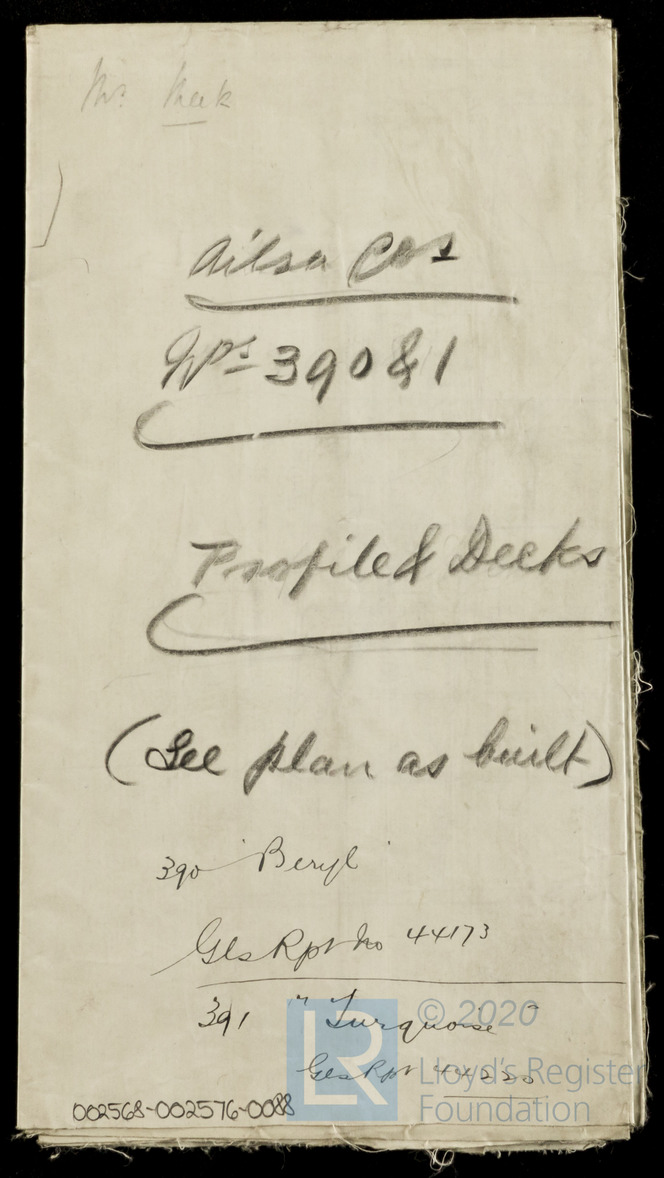 Mr. Keek
Ailsa Cos
Nos 390 & 1
Profile & Decks
(See plan as built)
390 "Beryl"
Gls Rpt No 44173
391 "Turquoise"
Gls Rpt 44220
002568-002576-0088
LR © 2020
Lloyd's Register
Foundation